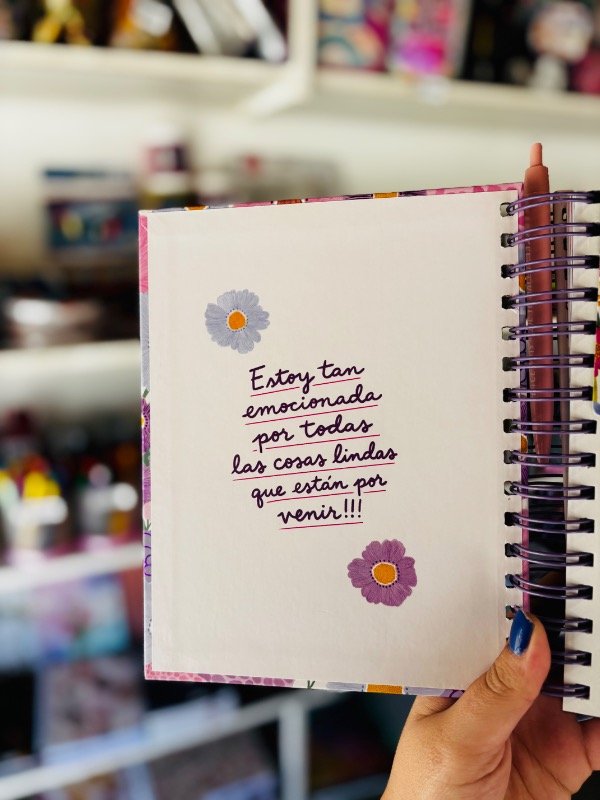 Estoy tan
emocionada
por todas
las cosas lindas
que están por
venir!!!